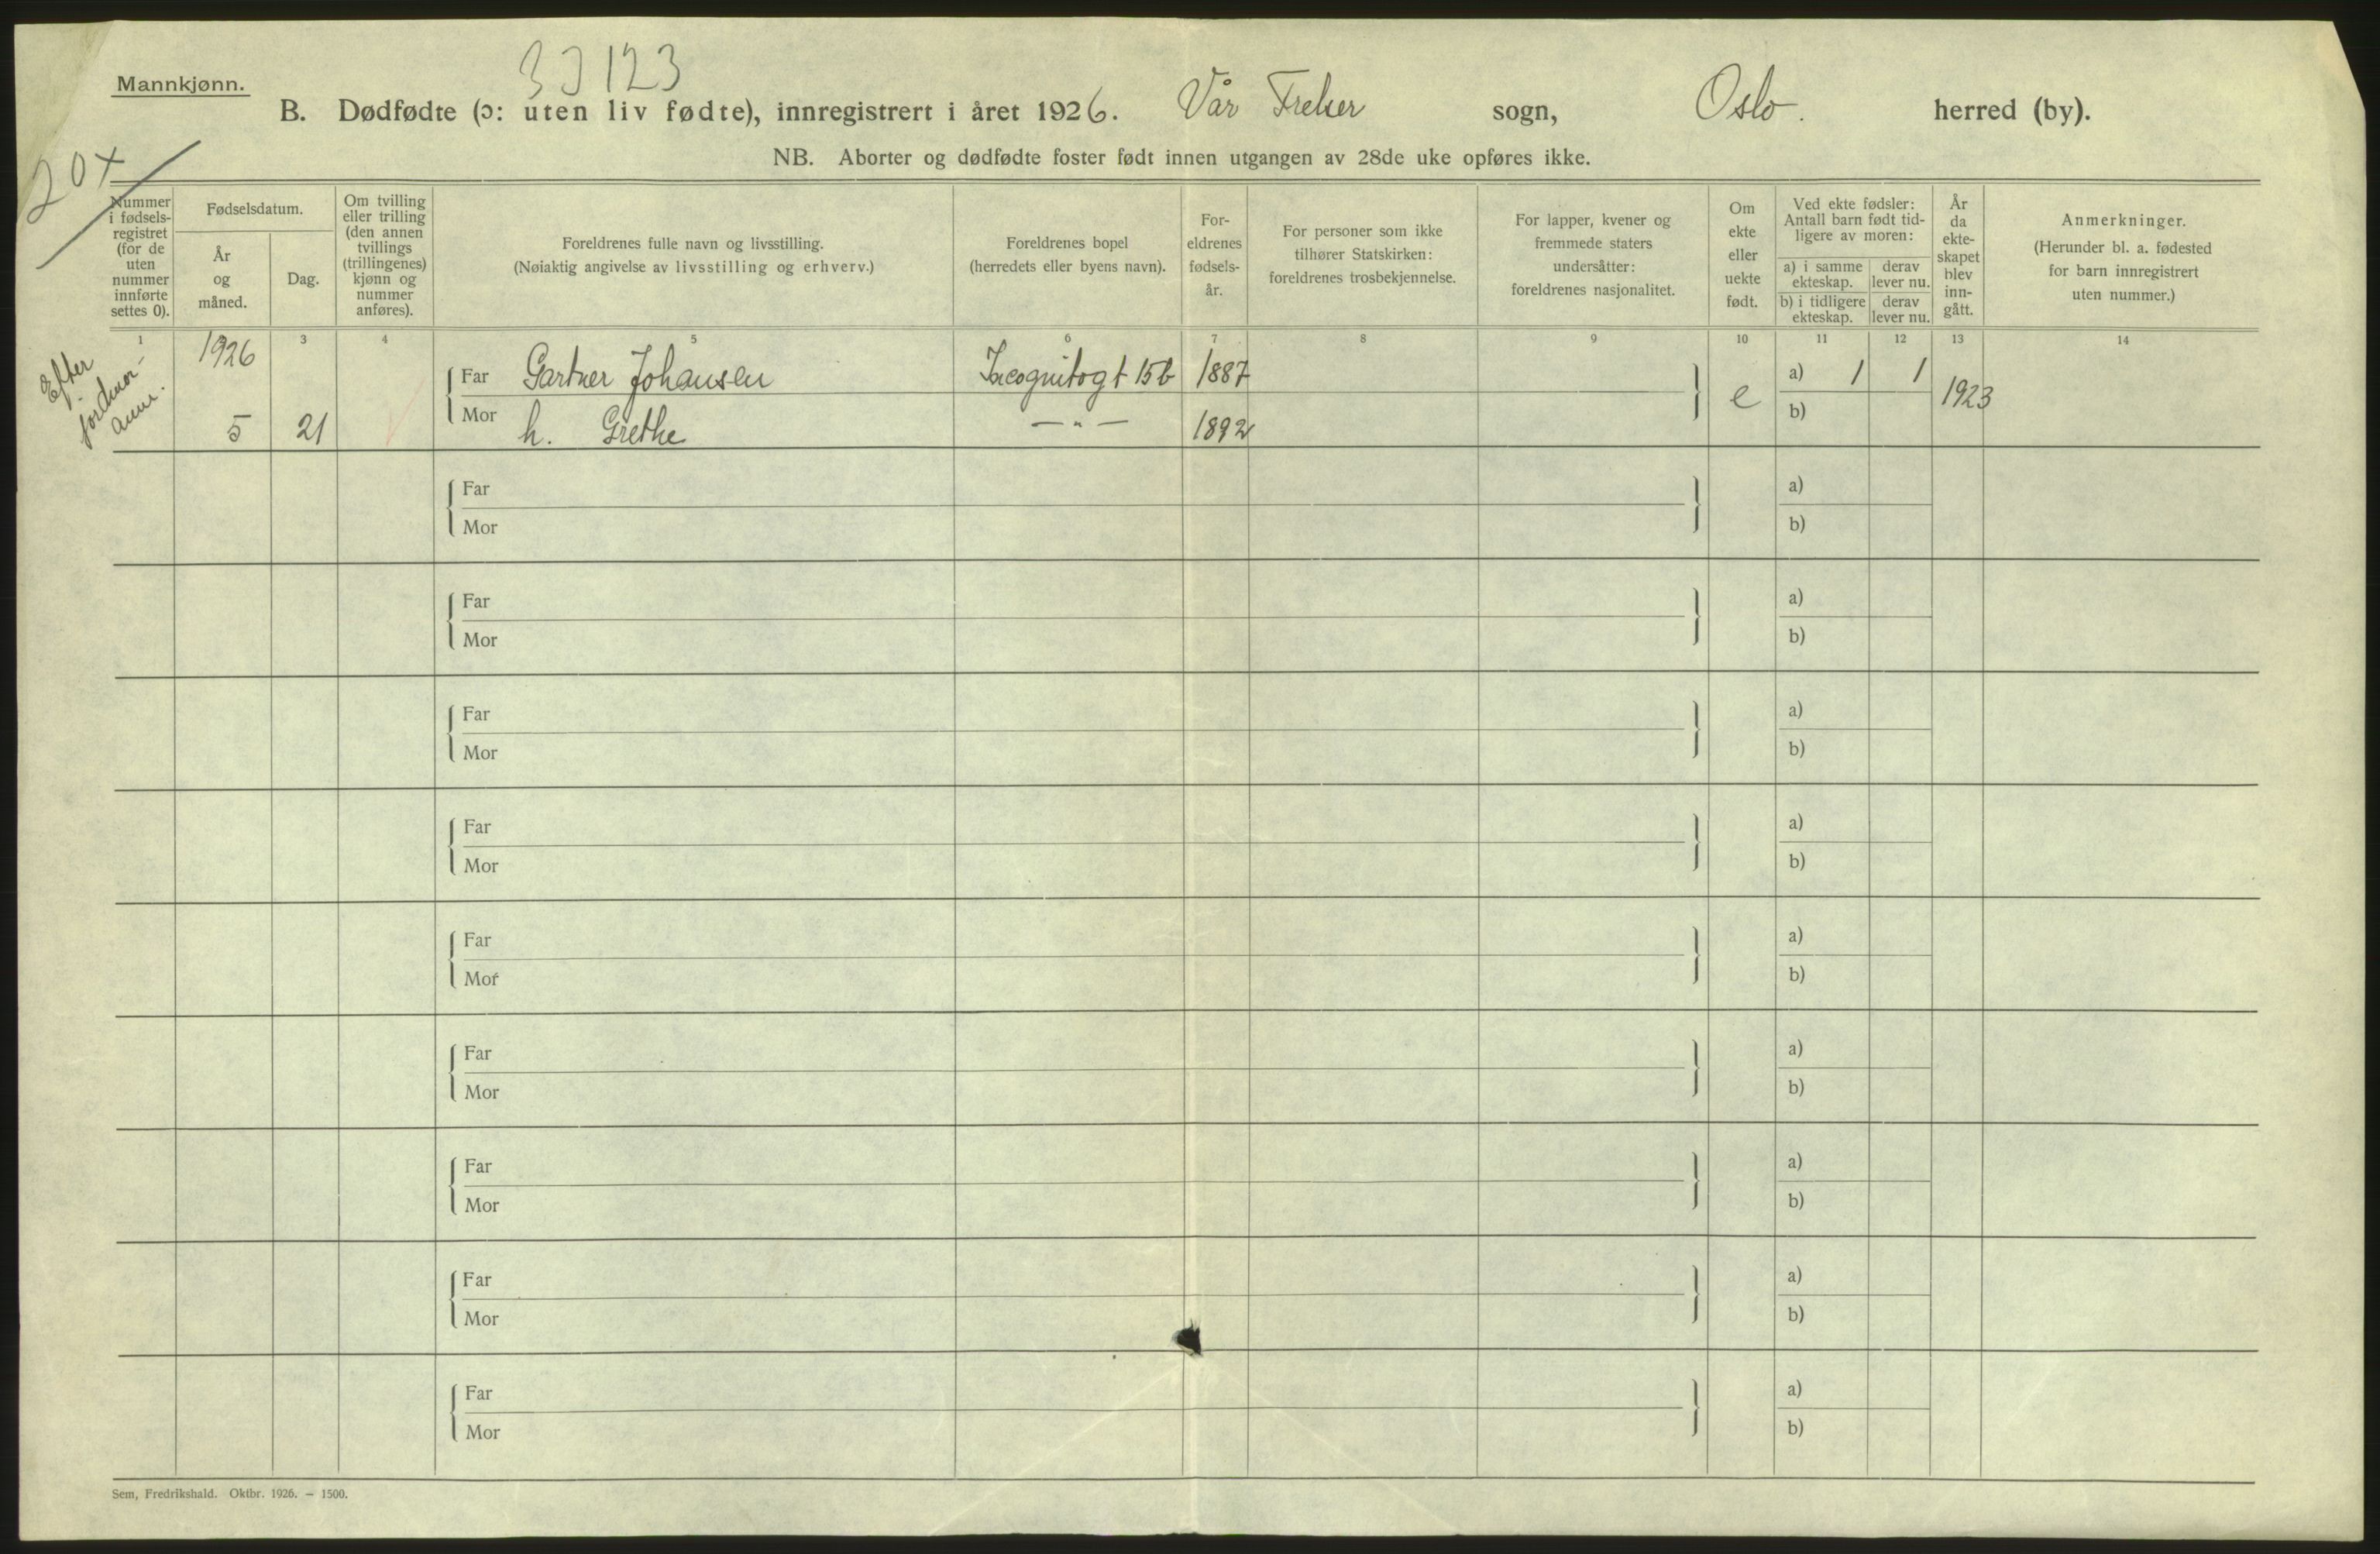 33123
Mannkjønn.
B. Dødfødte (ɔ: uten liv fødte), innregistrert i året 1926. Vår Frelser sogn, Oslo. herred (by).
20+
NB. Aborter og dødfødte foster født innen utgangen av 28de uke opføres ikke.
Nummer
i fødsels-
registret
(for de
uten
nummer
innførte
settes 0).
Fødselsdatum.
År
og
måned.
Dag.
Om tvilling
eller trilling
(den annen
tvillings
(trillingenes)
kjønn og
nummer
anføres).
Foreldrenes fulle navn og livsstilling.
(Nøiaktig angivelse av livsstilling og erhverv.)
Foreldrenes bopel
(herredets eller byens navn).
For-
eldrenes
fødsels-
år.
For personer som ikke
tilhører Statskirken:
foreldrenes trosbekjennelse.
For lapper, kvener og
fremmede staters
undersåtter:
foreldrenes nasjonalitet.
Om
ekte
eller
uekte
født.
Ved ekte fødsler:
Antall barn født tid-
ligere av moren:
a) i samme
ekteskap.
derav
lever nu.
b) i tidligere
ekteskap.
derav
lever nu.
År
da
ekte-
skapet
blev
inn-
gått.
Anmerkninger.
(Herunder bl. a. fødested
for barn innregistrert
uten nummer.)
1 3 4 5 6 7 8 9 10 11 12 13 14
Efter
jordmor-
anm.
1926
5 21
Far Gartner Johansen Incognitogt 15b 1887
Mor h. Grethe — " — 1892
e
a) 1 1
b)
1923
Far a)
Mor b)
Far a)
Mor b)
Far a)
Mor b)
Far a)
Mor b)
Far a)
Mor b)
Far a)
Mor b)
Far a)
Mor b)
Far a)
Mor b)
Far a)
Mor b)
Sem, Fredrikshald. Oktbr. 1926. — 1500.